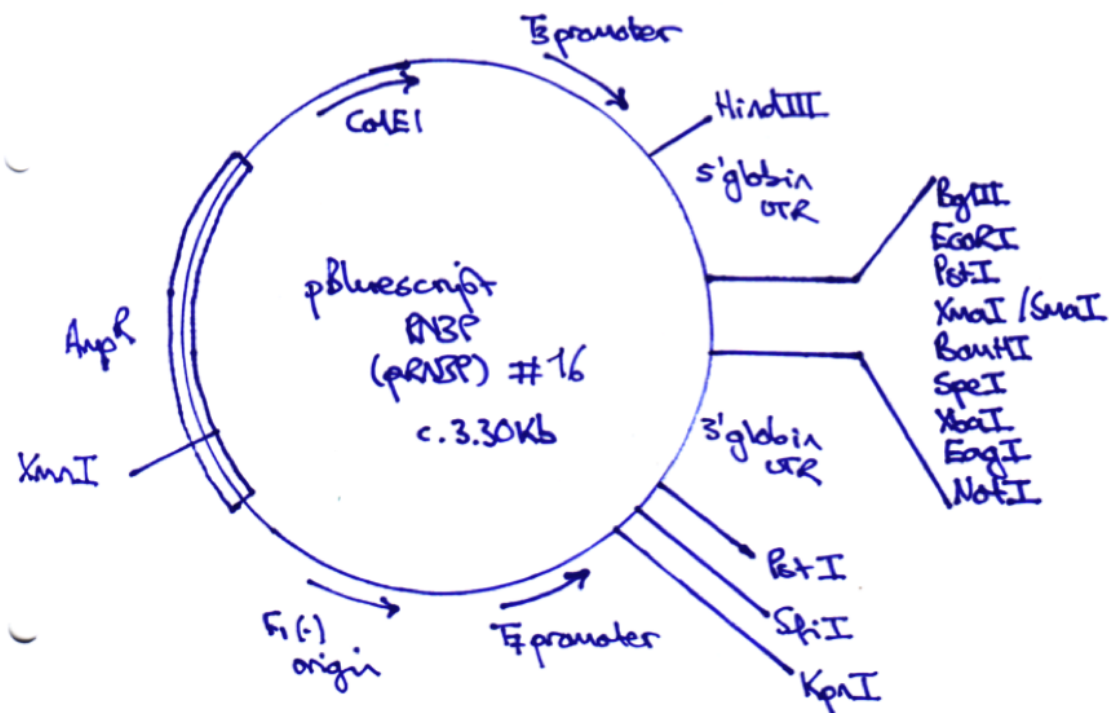 T3 promoter
ColE1
HindIII
5'globin
UTR
BglII
EcoRI
PstI
XmaI/SmaI
BamHI
SpeI
XbaI
EagI
NotI
pBluescript
RN3P
(pRN3P) #16
c.3.30Kb
AmpR
XmnI
3'globin
UTR
PstI
SfiI
KpnI
T7 promoter
F1(-)
origin